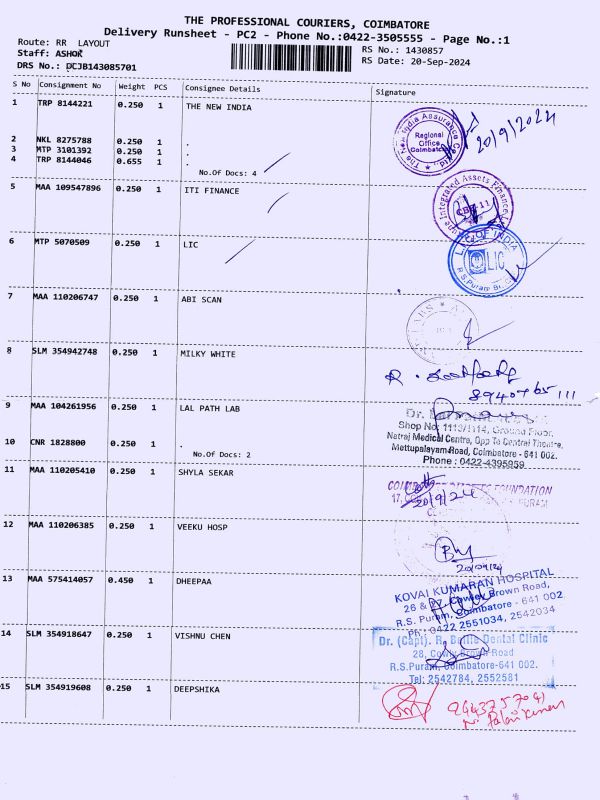 THE PROFESSIONAL COURIERS, COIMBATORE
Delivery Runsheet - PC2 - Phone No.:0422-3505555 - Page No.:1
Route: RR LAYOUT
Staff: ASHOK
DRS No.: DCJB143085701
RS No.: 1430857
RS Date: 20-Sep-2024
S No Consignment No Weight PCS Consignee Details Signature
1 TRP 8144221 0.250 1 THE NEW INDIA
The New India Assurance Co. Ltd.
Regional Office Coimbatore
20/9/2024
2 NKL 8275788 0.250 1 .
3 MTP 3101392 0.250 1 .
4 TRP 8144046 0.655 1 .
No.Of Docs: 4
5 MAA 109547896 0.250 1 ITI FINANCE
Integrated Assets Finance
CBE-11
6 MTP 5070509 0.250 1 LIC
LIC OF INDIA
LIC
R.S.Puram
7 MAA 110206747 0.250 1 ABI SCAN
8 SLM 354942748 0.250 1 MILKY WHITE
9 MAA 104261956 0.250 1 LAL PATH LAB
Dr.
Shop No: 1113/1114, Ground Floor,
Natraj Medical Centre, Opp To Central Theatre,
Mettupalayam Road, Coimbatore - 641 002.
Phone : 0422-4395959
10 CNR 1828800 0.250 1 .
No.Of Docs: 2
11 MAA 110205410 0.250 1 SHYLA SEKAR
FOUNDATION
20/9/24
12 MAA 110206385 0.250 1 VEEKU HOSP
20/09/24
13 MAA 575414057 0.450 1 DHEEPAA
KOVAI KUMARAN HOSPITAL
26 & 27, Cowley Brown Road,
R.S. Puram, Coimbatore - 641 002
Ph : 0422 2551034, 2542034
14 SLM 354918647 0.250 1 VISHNU CHEN
Dr. (Capt). R. Dental Clinic
28, Cowly Brown Road
R.S.Puram, Coimbatore-641 002.
Tel: 2542784, 2552581
15 SLM 354919608 0.250 1 DEEPSHIKA
9443757041